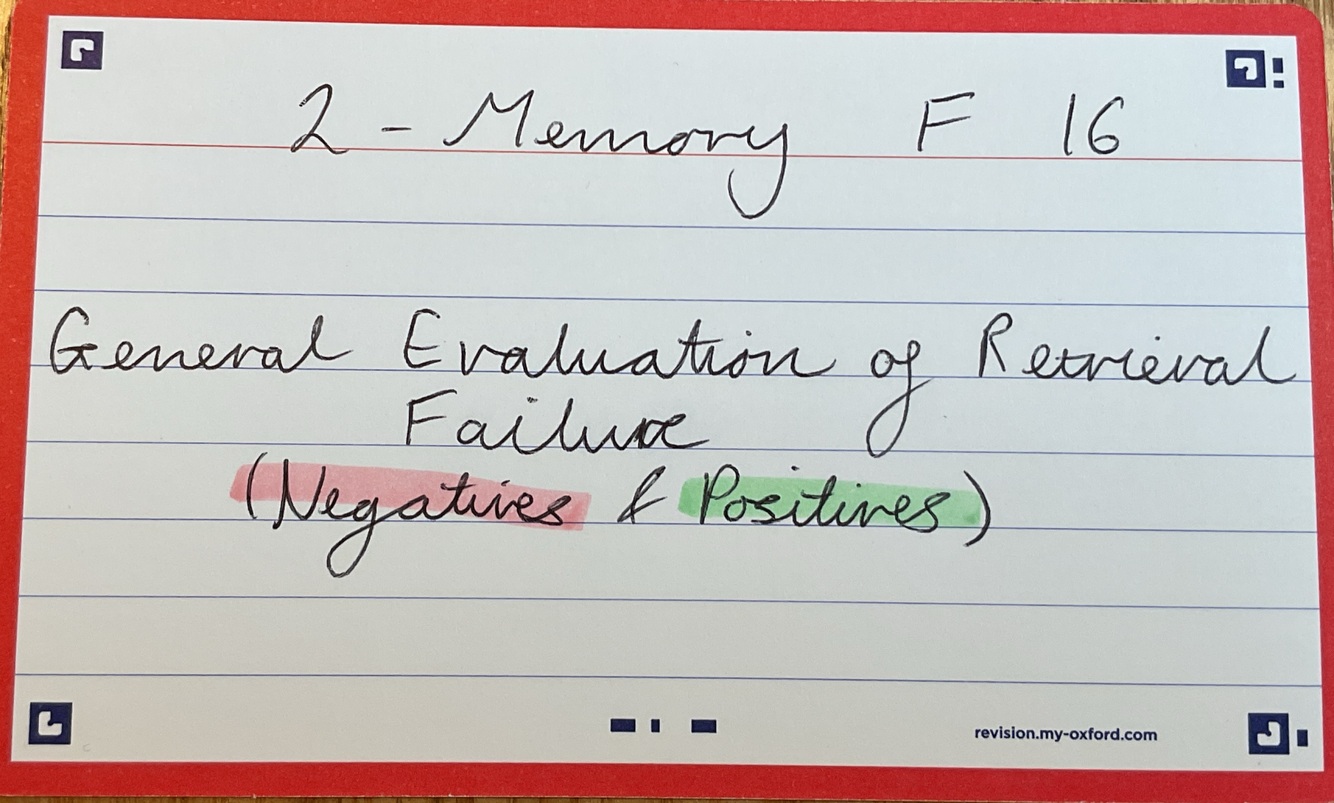 2 - Memory F 16
General Evaluation of Retrieval
Failure
(Negatives & Positives)
revision.my-oxford.com